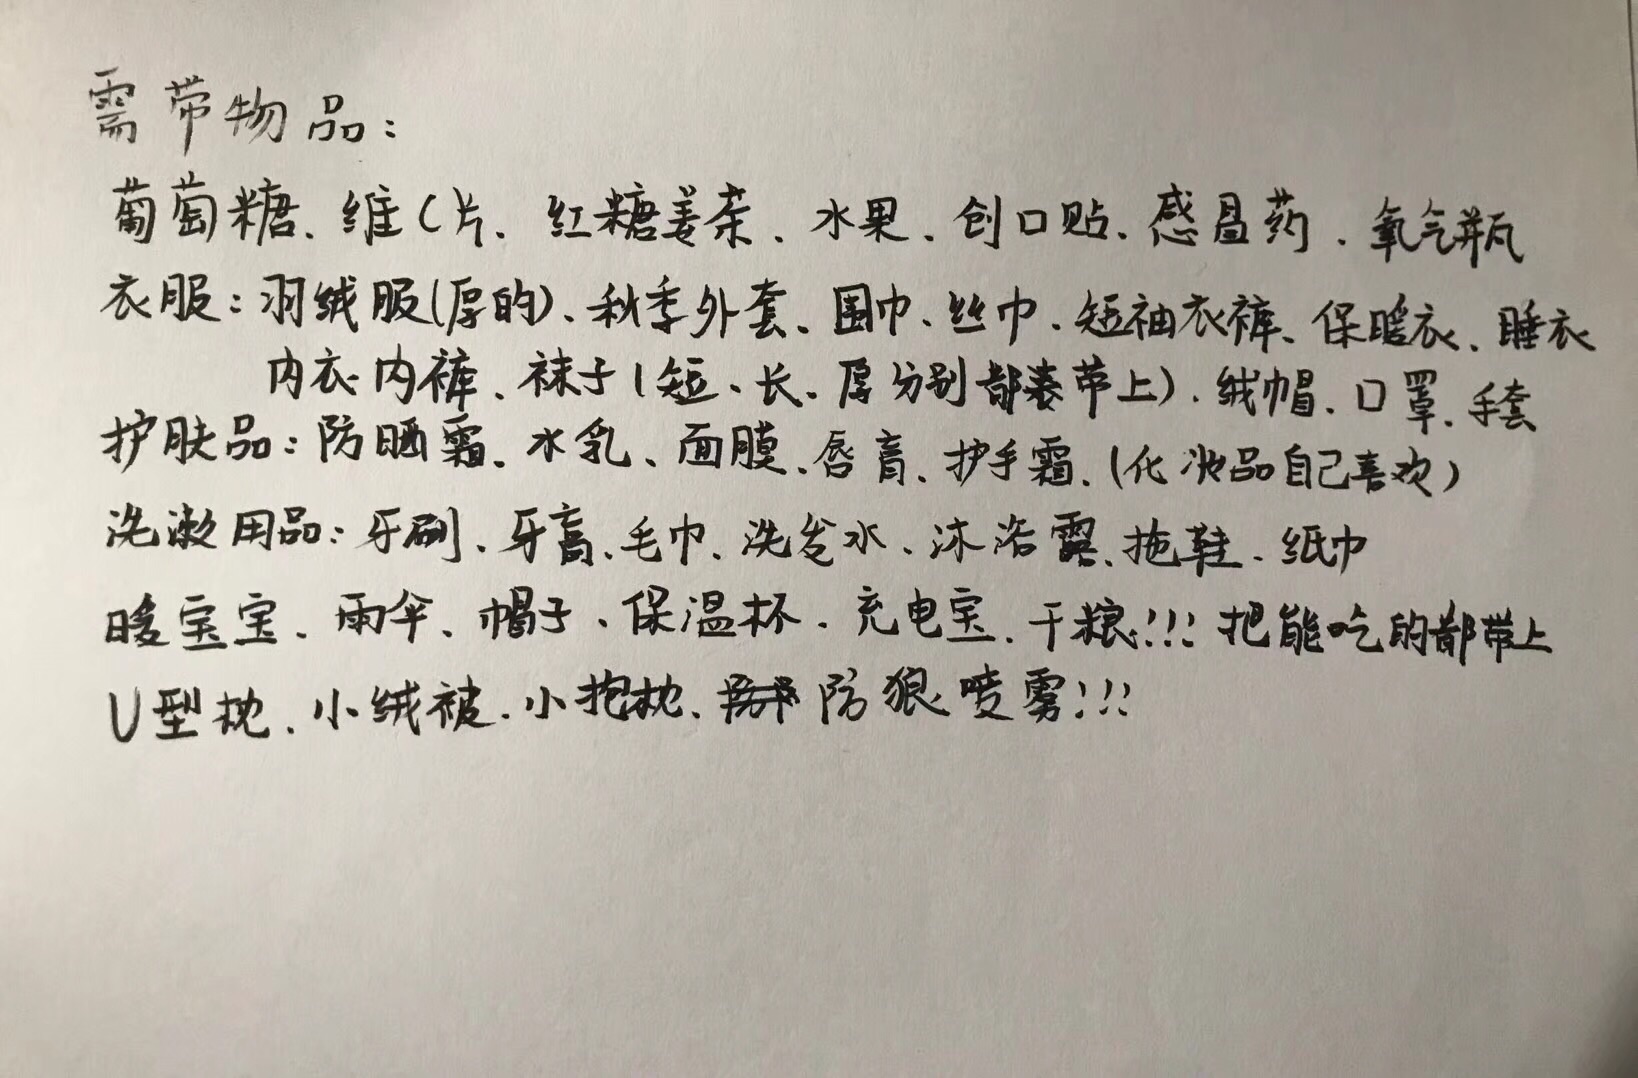 需带物品：
葡萄糖、维C片、红糖姜茶、水果、创口贴、感冒药、氧气瓶
衣服：羽绒服（厚的）、秋季外套、围巾、丝巾、短袖衣裤、保暖衣、睡衣
内衣内裤、袜子（短、长、厚分别都要带上）、绒帽、口罩、手套
护肤品：防晒霜、水乳、面膜、唇膏、护手霜、（化妆品自己喜欢）
洗漱用品：牙刷、牙膏、毛巾、洗发水、沐浴露、拖鞋、纸巾
暖宝宝、雨伞、帽子、保温杯、充电宝、干粮!!! 把能吃的都带上
U型枕、小绒被、小抱枕、防狼喷雾!!!